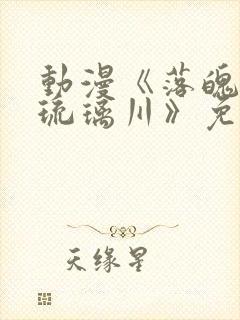 動漫《落魄
琉璃川》免
天缘星